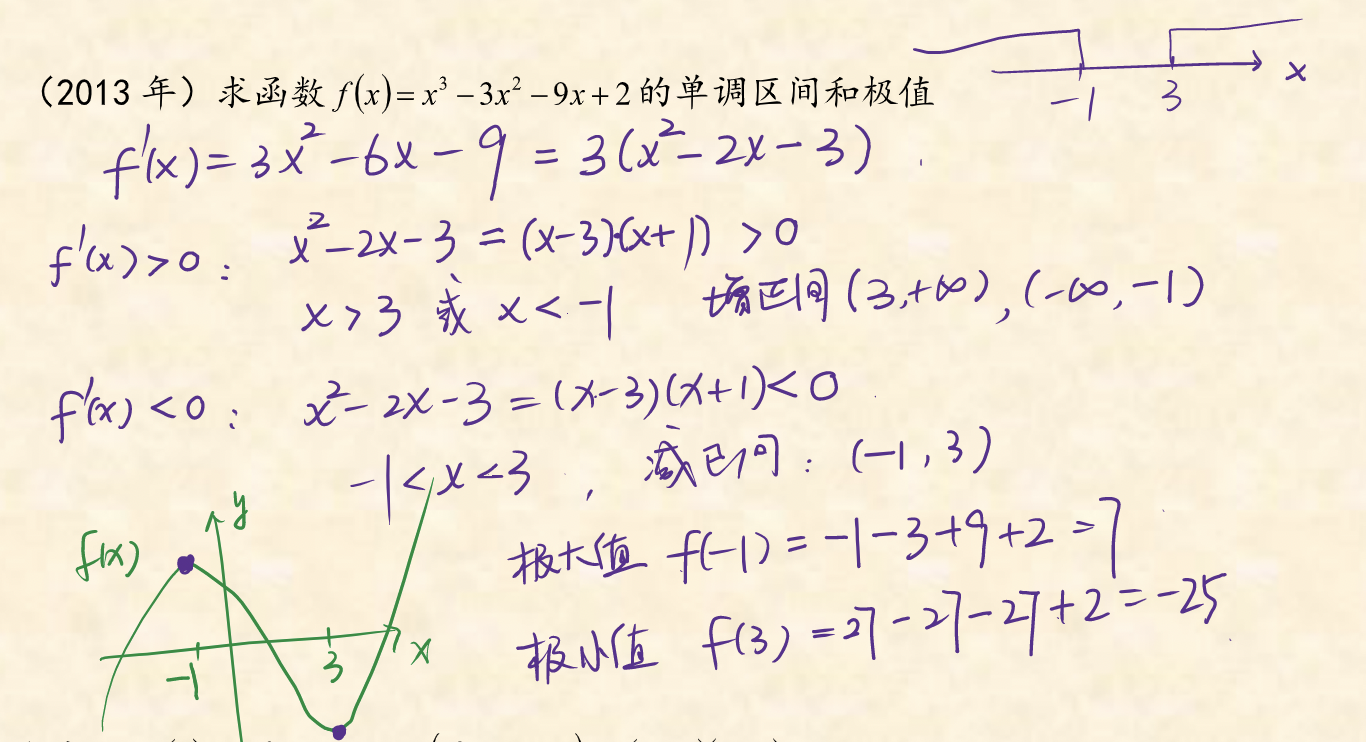 （2013 年）求函数 f(x)=x³−3x²−9x+2 的单调区间和极值
-1 3 x
f'(x)=3x²-6x-9=3(x²-2x-3)
f'(x)>0: x²-2x-3=(x-3)·(x+1)>0
x>3 或 x<-1 增区间(3,+∞),(-∞,-1)
f'(x)<0: x²-2x-3=(x-3)(x+1)<0
-1<x<3, 减区间:(-1,3)
极大值 f(-1)=-1-3+9+2=7
极小值 f(3)=27-27-27+2=-25
f(x) y
-1 3 x